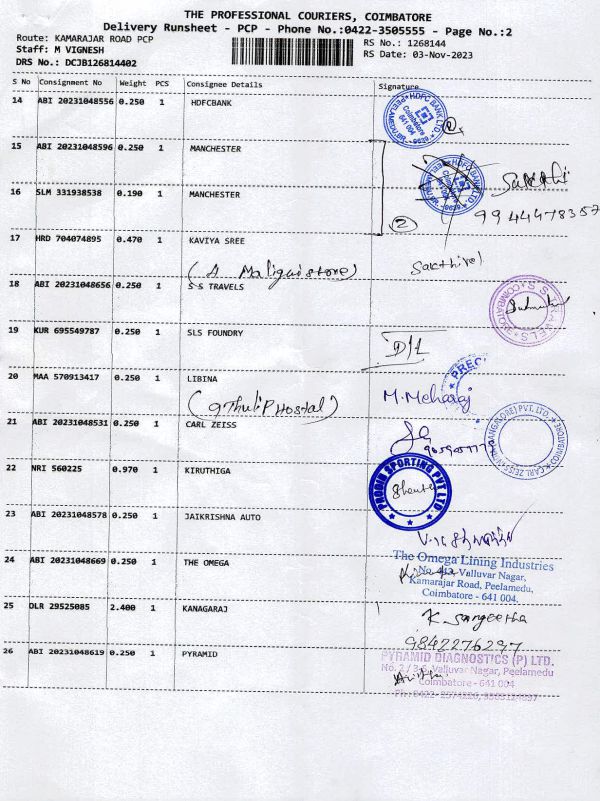 THE PROFESSIONAL COURIERS, COIMBATORE
Delivery Runsheet - PCP - Phone No.:0422-3505555 - Page No.:2
Route: KAMARAJAR ROAD PCP
RS No.: 1268144
Staff: M VIGNESH
RS Date: 03-Nov-2023
DRS No.: DCJB126814402
S No Consignment No Weight PCS Consignee Details Signature
14 ABI 20231048556 0.250 1 HDFCBANK
HDFC BANK LTD
Coimbatore
641 004
15 ABI 20231048596 0.250 1 MANCHESTER
Sakthi
16 SLM 331938538 0.190 1 MANCHESTER
2
9944478357
17 HRD 704074895 0.470 1 KAVIYA SREE
(A Maligai store)
Sakthivel
18 ABI 20231048656 0.250 1 S S TRAVELS
19 KUR 695549787 0.250 1 SLS FOUNDRY
D/L
20 MAA 570913417 0.250 1 LIBINA
PREC
M. Meharaj
21 ABI 20231048531 0.250 1 CARL ZEISS
22 NRI 560225 0.970 1 KIRUTHIGA
PRODIN SPORTING PVT LTD
23 ABI 20231048578 0.250 1 JAIKRISHNA AUTO
24 ABI 20231048669 0.250 1 THE OMEGA
The Omega Lining Industries
Valluvar Nagar,
Kamarajar Road, Peelamedu,
Coimbatore - 641 004.
25 DLR 29525085 2.400 1 KANAGARAJ
K. Sangeetha
9842276297
26 ABI 20231048619 0.250 1 PYRAMID
PYRAMID DIAGNOSTICS (P) LTD.
Valluvar Nagar, Peelamedu
Coimbatore - 641 004